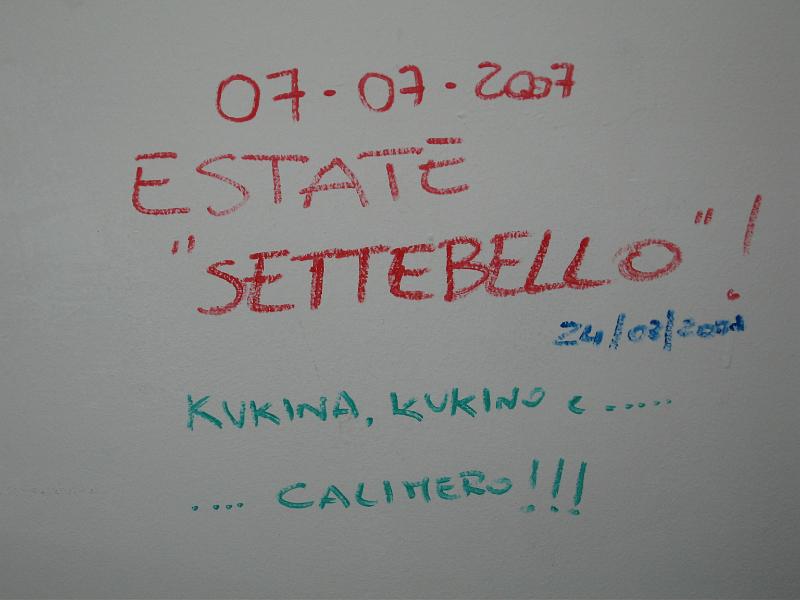 07-07-2007
ESTATE
"SETTEBELLO"!
KUKINA, KUKINO e .....
.... CALIMERO!!!